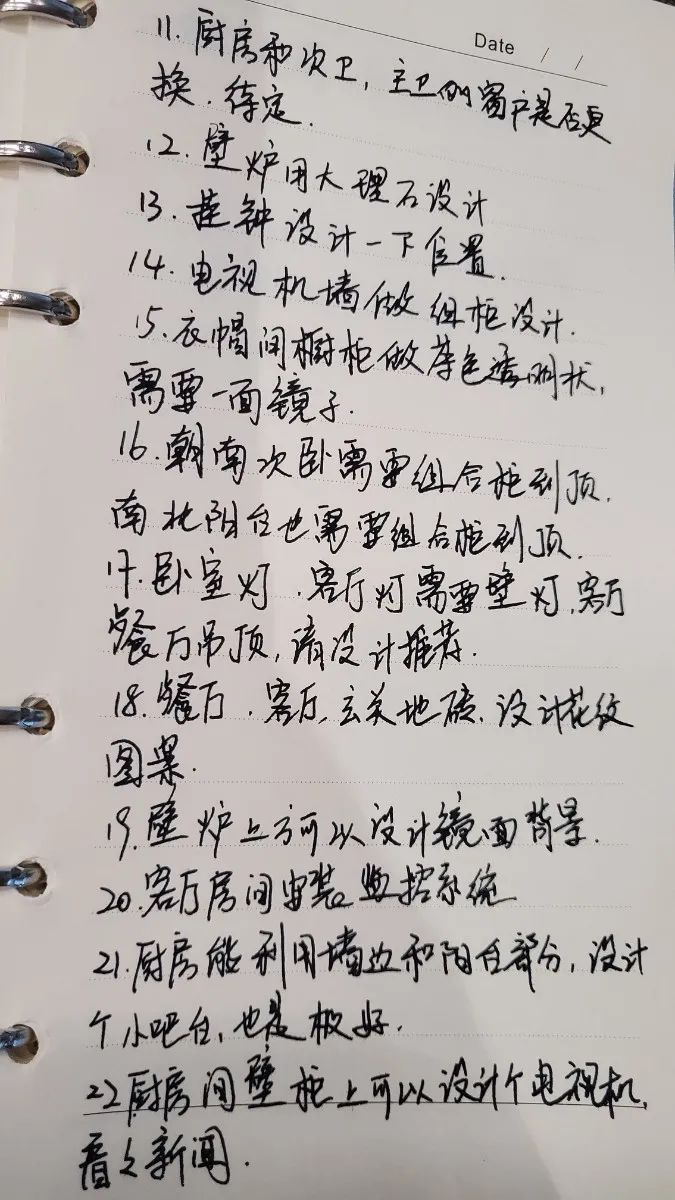 Date / /
11. 厨房和次卫, 主卫的窗户是否更
换. 待定.
12. 壁炉用大理石设计
13. 挂钟设计一下位置.
14. 电视机墙做组柜设计.
15. 衣帽间橱柜做茶色透明状,
需要一面镜子.
16. 朝南次卧需要组合柜到顶.
南北阳台也需要组合柜到顶.
17. 卧室灯. 客厅灯需要壁灯, 客厅
餐厅吊顶, 请设计推荐.
18. 餐厅. 客厅, 玄关地砖. 设计花纹
图案.
19. 壁炉上方可以设计镜面背景.
20. 客厅房间安装监控系统
21. 厨房能利用墙边和阳台部分, 设计
个小吧台, 也是极好.
22 厨房间壁柜上可以设计个电视机,
看之新闻.